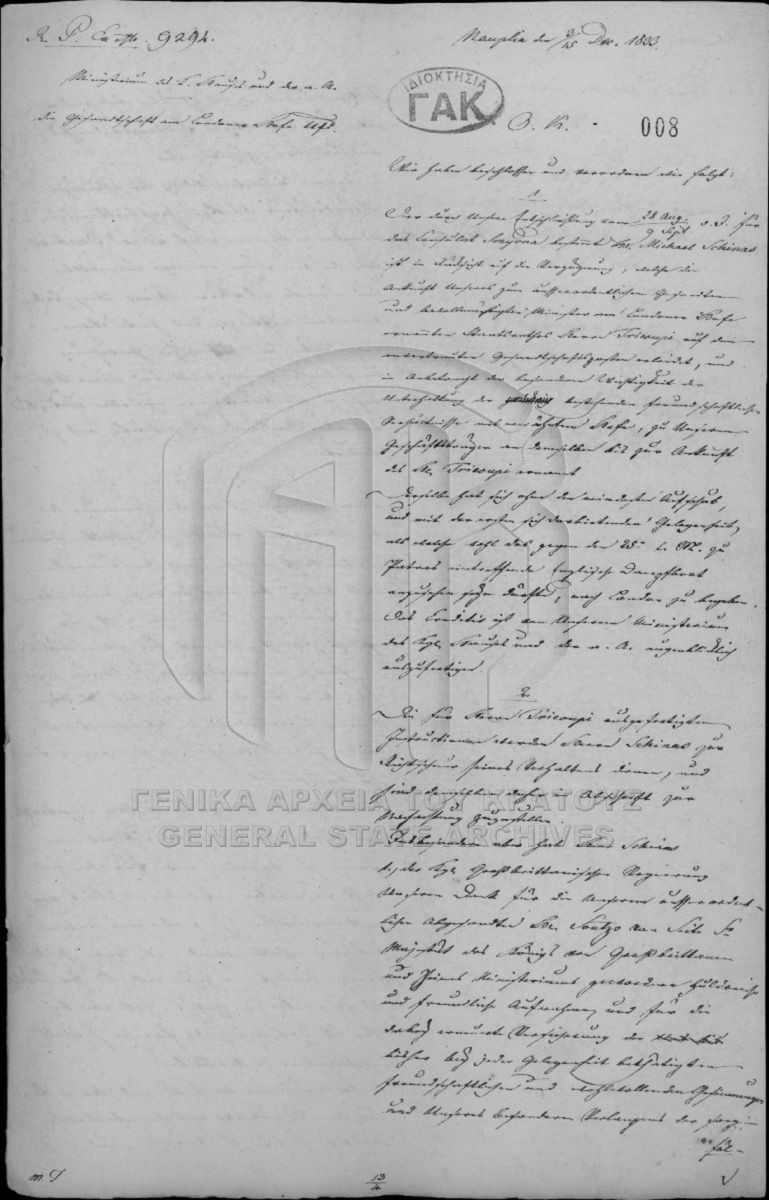 R. P. 9294.
Nauplia den 3/15 Dec. 1833.
Ministerium des k. Hauses und der a. A.
die Gesandtschaft am Londoner Hofe
ΙΔΙΟΚΤΗΣΙΑ
ΓΑΚ
O. K.
008
Wir haben beschlossen und verordnen wie folgt:
1
Der durch Unsere Entschließung vom 28 Aug./9 Sept. d. J. für
das Consulat Smyrna bestimmte Hr. Michael Schinas
ist in Rücksicht auf die Verzögerung, welche die
Ankunft Unseres zum ausserordentlichen Gesandten
und bevollmächtigten Minister am Londoner Hofe
ernannten Staatsrathes Herrn Tricoupi auf dem
anvertrauten Gesandtschaftsposten erleidet, und
in Anbetracht der besondern Wichtigkeit der
Unterhaltung der bestehenden freundschaftlichen
Verhältnisse mit Hofe, zu Unserem
Geschäftsträger an demselben bis zur Ankunft
des Hn. Tricoupi ernannt.
Derselbe hat sich ohne den mindesten Aufschub,
und mit der ersten sich darbietenden Gelegenheit,
als welche wohl das gegen den 25. d. M. zu
Patras eintreffende Englische Dampfboot
anzusehen seyn dürfte, nach London zu begeben.
Das Creditiv ist von Unserem Ministerium
des Kgl. Hauses und der a. A. augenblicklich
auszufertigen
2
Die für Herrn Tricoupi ausgefertigten
Instructionen werden Herrn Schinas zur
Richtschnur seines Verhaltens dienen, und
sind demselben daher in Abschrift zur
Nachachtung zuzustellen.
Insbesondere aber hat Herr Schinas
1., der Kgl. Großbrittanischen Regierung
Unseren Dank für die Unserem ausserordent-
lichen Abgesandten Hn. Soutzo von Seite Sr.
Majestät des Königs von Großbrittannien
und Ministeriums gewordene huldreiche
und freundliche Aufnahme, und für die
dabey erneuerte Versicherung der
bisher bey jeder Gelegenheit bethätigten
freundschaftlichen und wohlwollenden Gesinnungen
und Unseres besonderen Verlangens der sorg-
fäl-
ΓΕΝΙΚΑ ΑΡΧΕΙΑ ΤΟΥ ΚΡΑΤΟΥΣ
GENERAL STATE ARCHIVES
13/4